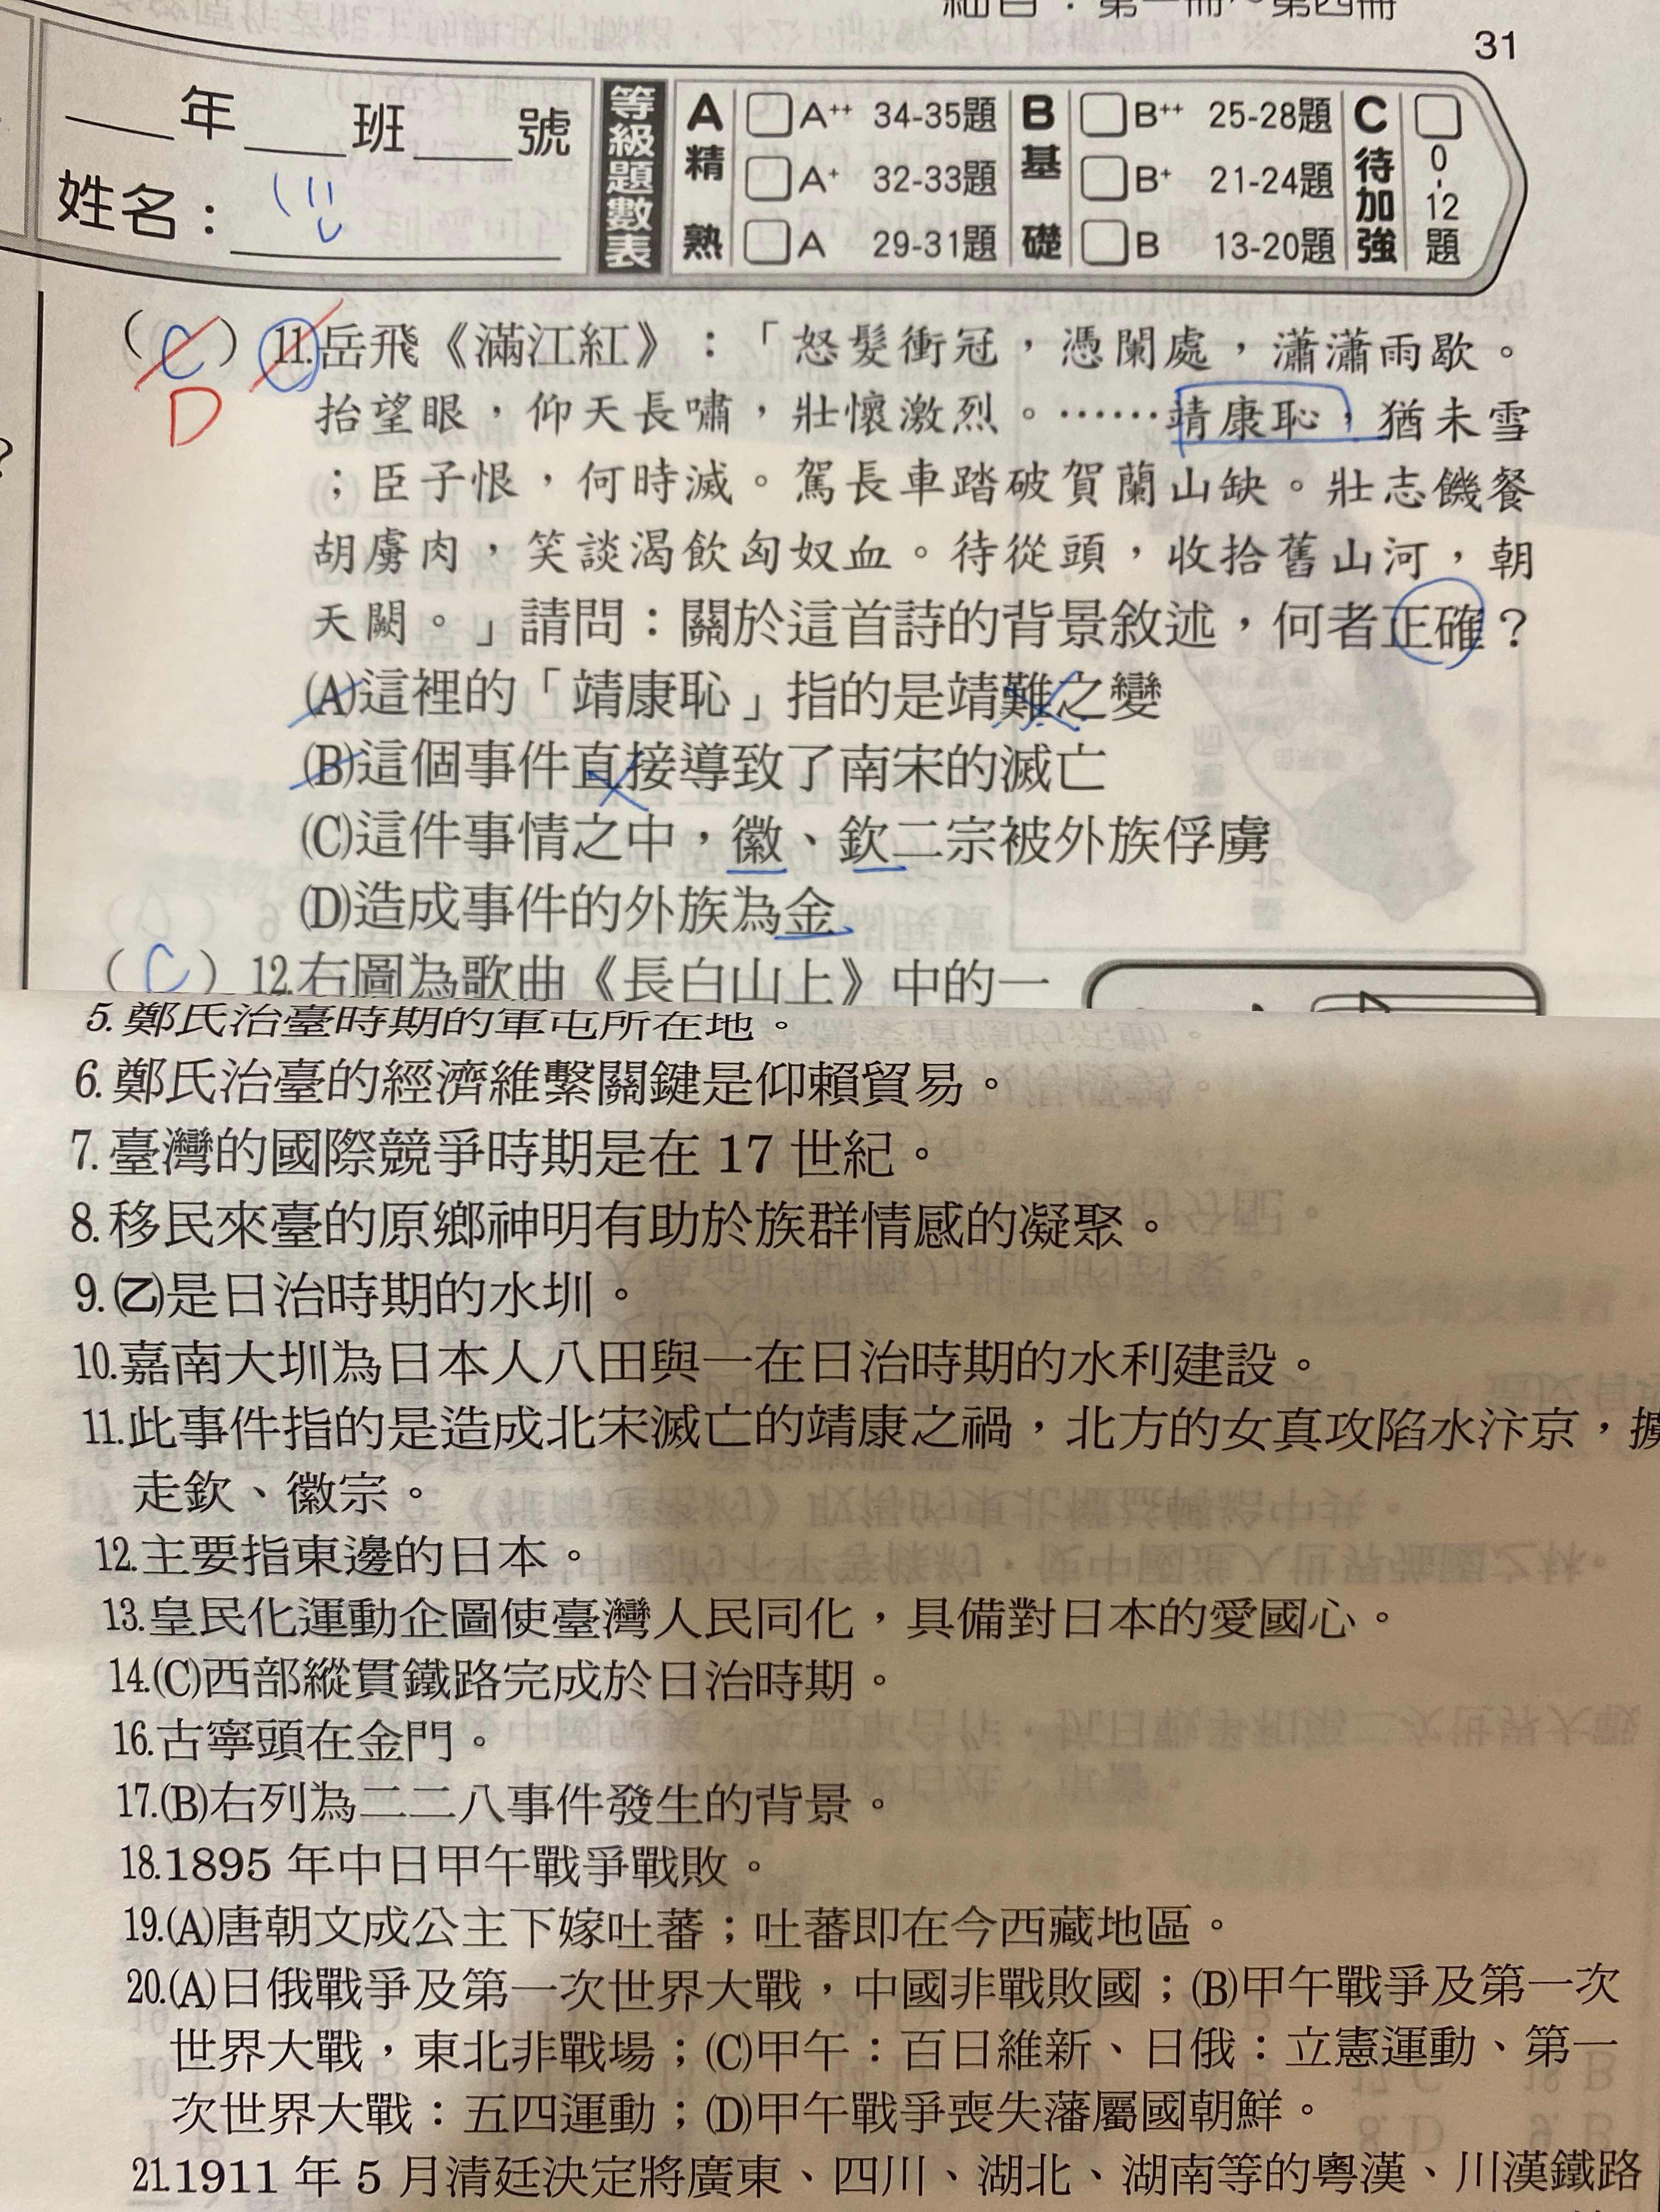 細目：第一冊～第四冊
31
年 班 號
姓名：
等級題數表
A 精熟
A++ 34-35題
A+ 32-33題
A 29-31題
B 基礎
B++ 25-28題
B+ 21-24題
B 13-20題
C 待加強
0-12題
(C) 11.岳飛《滿江紅》：「怒髮衝冠，憑闌處，瀟瀟雨歇。
D
抬望眼，仰天長嘯，壯懷激烈。……靖康恥，猶未雪
；臣子恨，何時滅。駕長車踏破賀蘭山缺。壯志饑餐
胡虜肉，笑談渴飲匈奴血。待從頭，收拾舊山河，朝
天闕。」請問：關於這首詩的背景敘述，何者正確？
(A)這裡的「靖康恥」指的是靖難之變
(B)這個事件直接導致了南宋的滅亡
(C)這件事情之中，徽、欽二宗被外族俘虜
(D)造成事件的外族為金
(C) 12.右圖為歌曲《長白山上》中的一
5.鄭氏治臺時期的軍屯所在地。
6.鄭氏治臺的經濟維繫關鍵是仰賴貿易。
7.臺灣的國際競爭時期是在 17 世紀。
8.移民來臺的原鄉神明有助於族群情感的凝聚。
9.(乙)是日治時期的水圳。
10.嘉南大圳為日本人八田與一在日治時期的水利建設。
11.此事件指的是造成北宋滅亡的靖康之禍，北方的女真攻陷水汴京，擄
走欽、徽宗。
12.主要指東邊的日本。
13.皇民化運動企圖使臺灣人民同化，具備對日本的愛國心。
14.(C)西部縱貫鐵路完成於日治時期。
16.古寧頭在金門。
17.(B)右列為二二八事件發生的背景。
18.1895 年中日甲午戰爭戰敗。
19.(A)唐朝文成公主下嫁吐蕃；吐蕃即在今西藏地區。
20.(A)日俄戰爭及第一次世界大戰，中國非戰敗國；(B)甲午戰爭及第一次
世界大戰，東北非戰場；(C)甲午：百日維新、日俄：立憲運動、第一
次世界大戰：五四運動；(D)甲午戰爭喪失藩屬國朝鮮。
21.1911 年 5 月清廷決定將廣東、四川、湖北、湖南等的粵漢、川漢鐵路